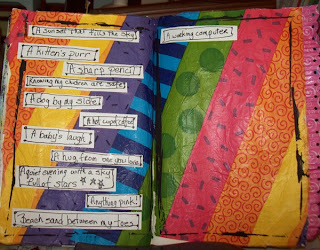 A sunset that fills the sky
A kitten's purr
A sharp pencil
Knowing my children are safe
A dog by my side
A hot cup of coffee
A baby's laugh
A hug from one you love
A quiet evening with a sky
full of stars
Anything pink!
Beach sand between my toes
A working computer!